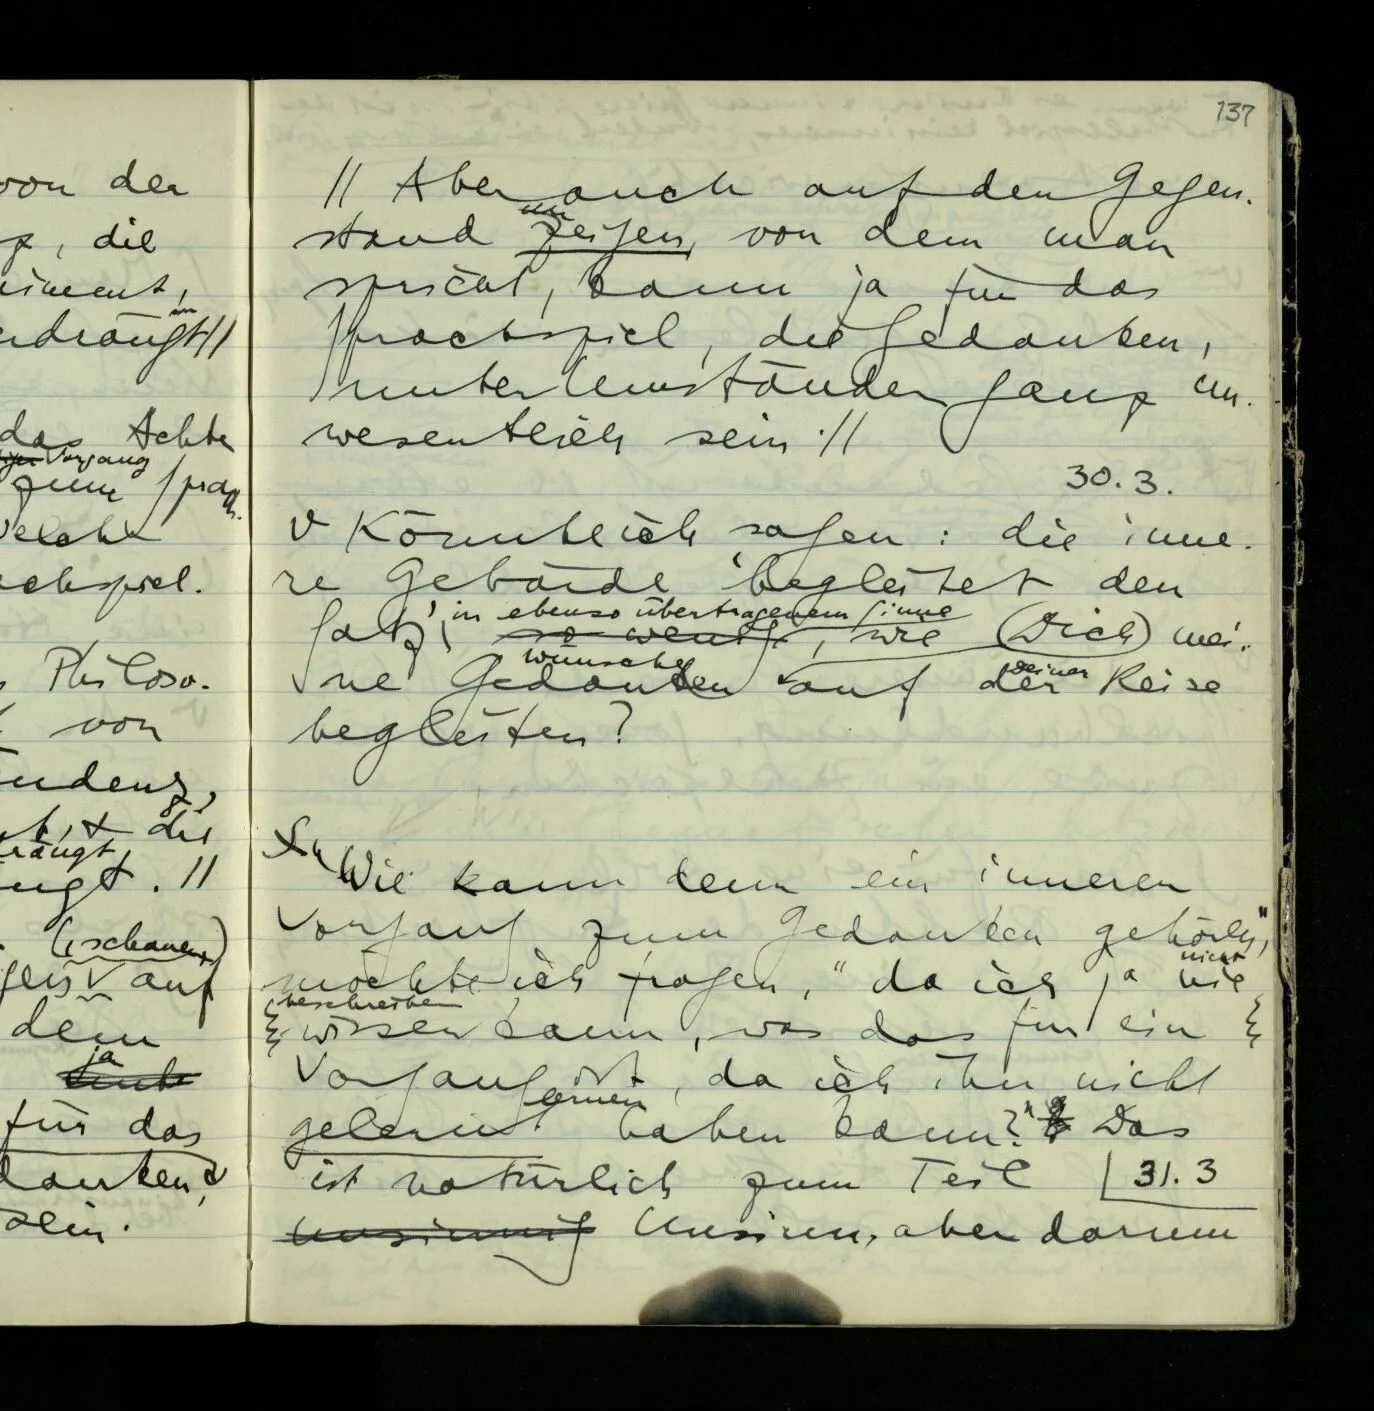 137
von der
, die
// Aber auch auf den Gegen-
um
stand zeigen, von dem man
spricht, kann ja für das
Sprachspiel, die Gedanken,
unter Umständen ganz un-
wesentlich sein. //
30.3.
v Könnte ich sagen: die inne-
re Gebärde 'begleitet den
in ebenso übertragenem Sinne
Satz', so wenig, wie (Dich) mei-
wünsche deiner
ne Gedanken auf der Reise
begleiten?
Wie kann denn ein innerer
Vorgang zum Gedanken gehören",
nicht
möchte ich fragen, "da ich ja nie
beschreiben
wissen kann, was das für ein
Vorgang ist, da ich ihn nicht
lernen
gelernt haben kann?" Das
ist natürlich zum Teil 31.3
unsinnig Unsinn, aber darum
das Achte
Vorgang
zum Sprach-
welche
achspiel.
Philoso-
von
endenz,
die
drängt
. //
(schauen)
auf
dem
ja
für das
danken,
sein.